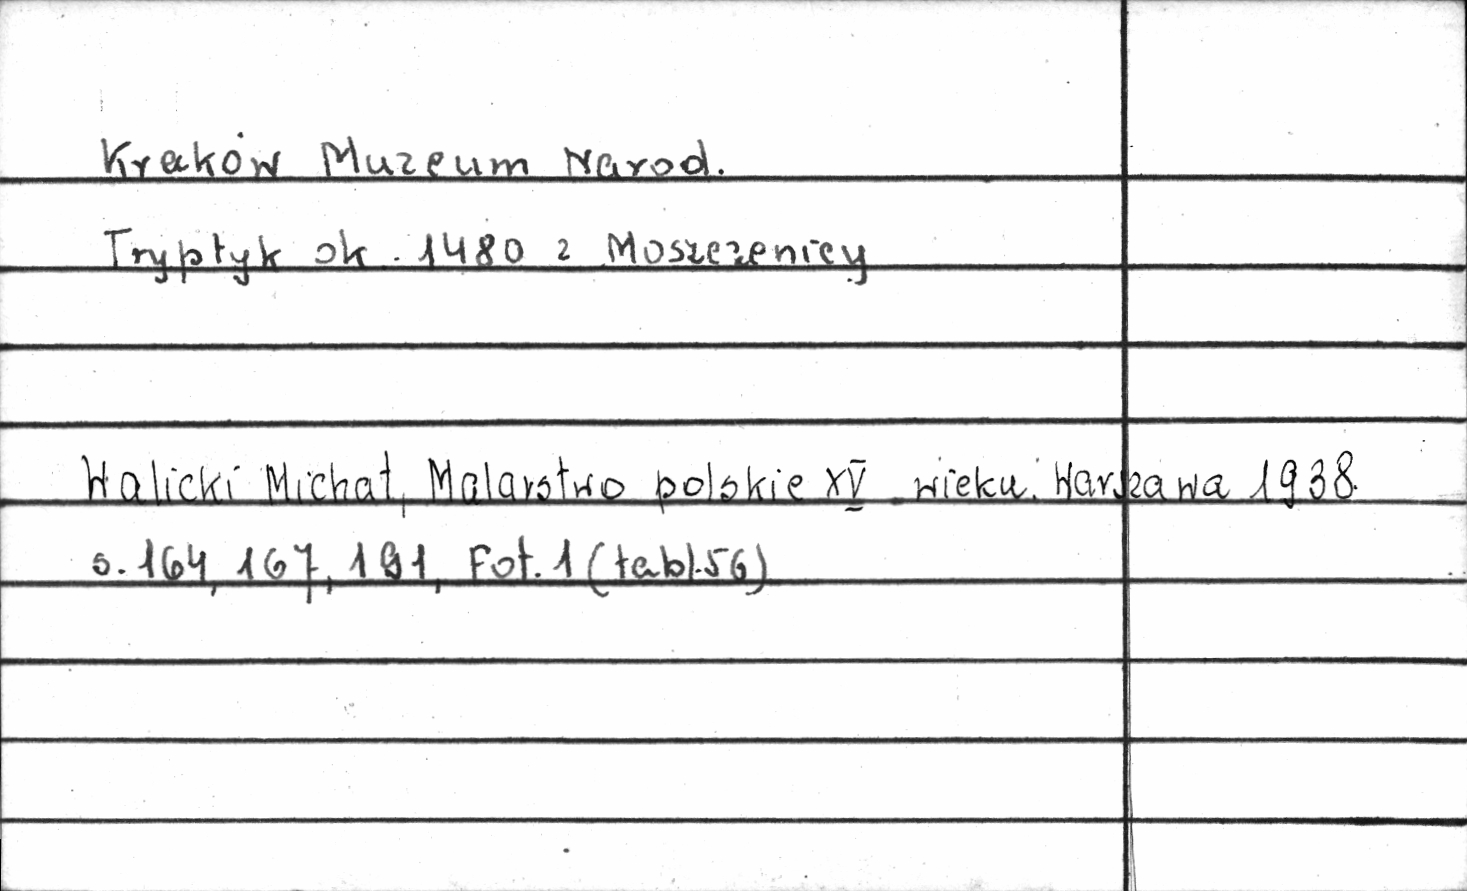 Kraków Muzeum Narod.
Tryptyk ok. 1480 z Moszczenicy
Walicki Michał, Malarstwo polskie XV wieku. Warszawa 1938.
s. 164, 167, 191, Fot. 1 (tabl. 56)